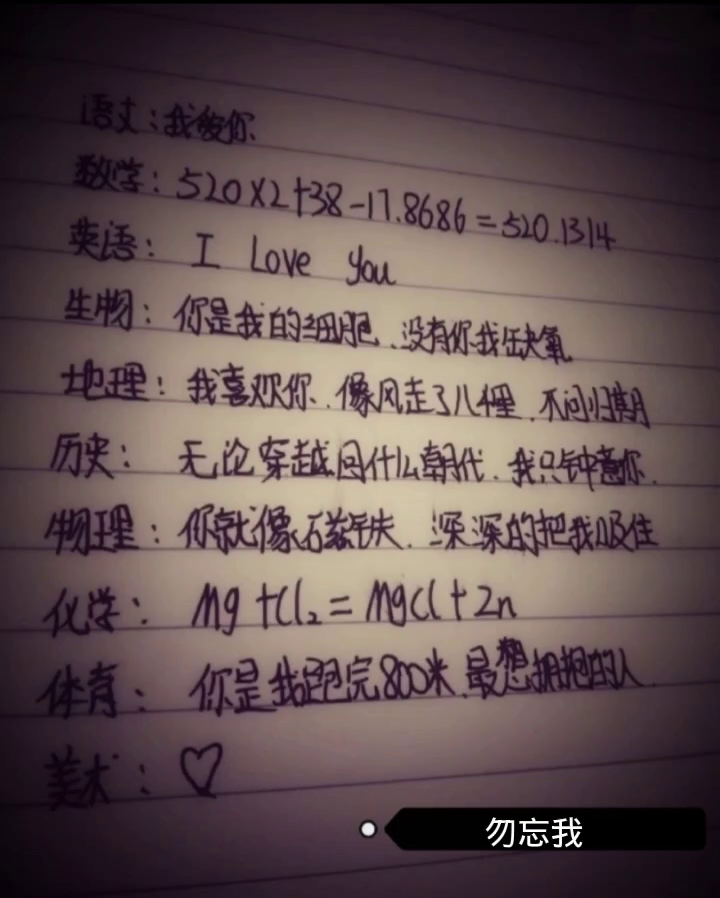 语文：我爱你
数学：520×2+38-17.8686=520.1314
英语：I Love You
生物：你是我的细胞、没有你我缺氧
地理：我喜欢你、像风走了八千里、不问归期
历史：无论穿越回什么朝代、我只钟意你、
物理：你就像磁铁、深深的把我吸住
化学：Mg+Cl₂=MgCl+Zn
体育：你是我跑完800米、最想拥抱的人
美术：♡
勿忘我